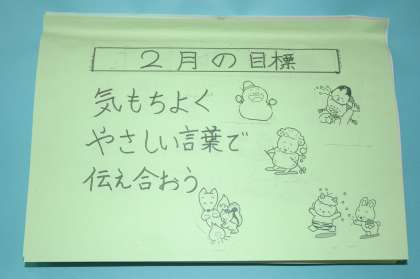 ２月の目標
気もちよく
やさしい言葉で
伝え合おう